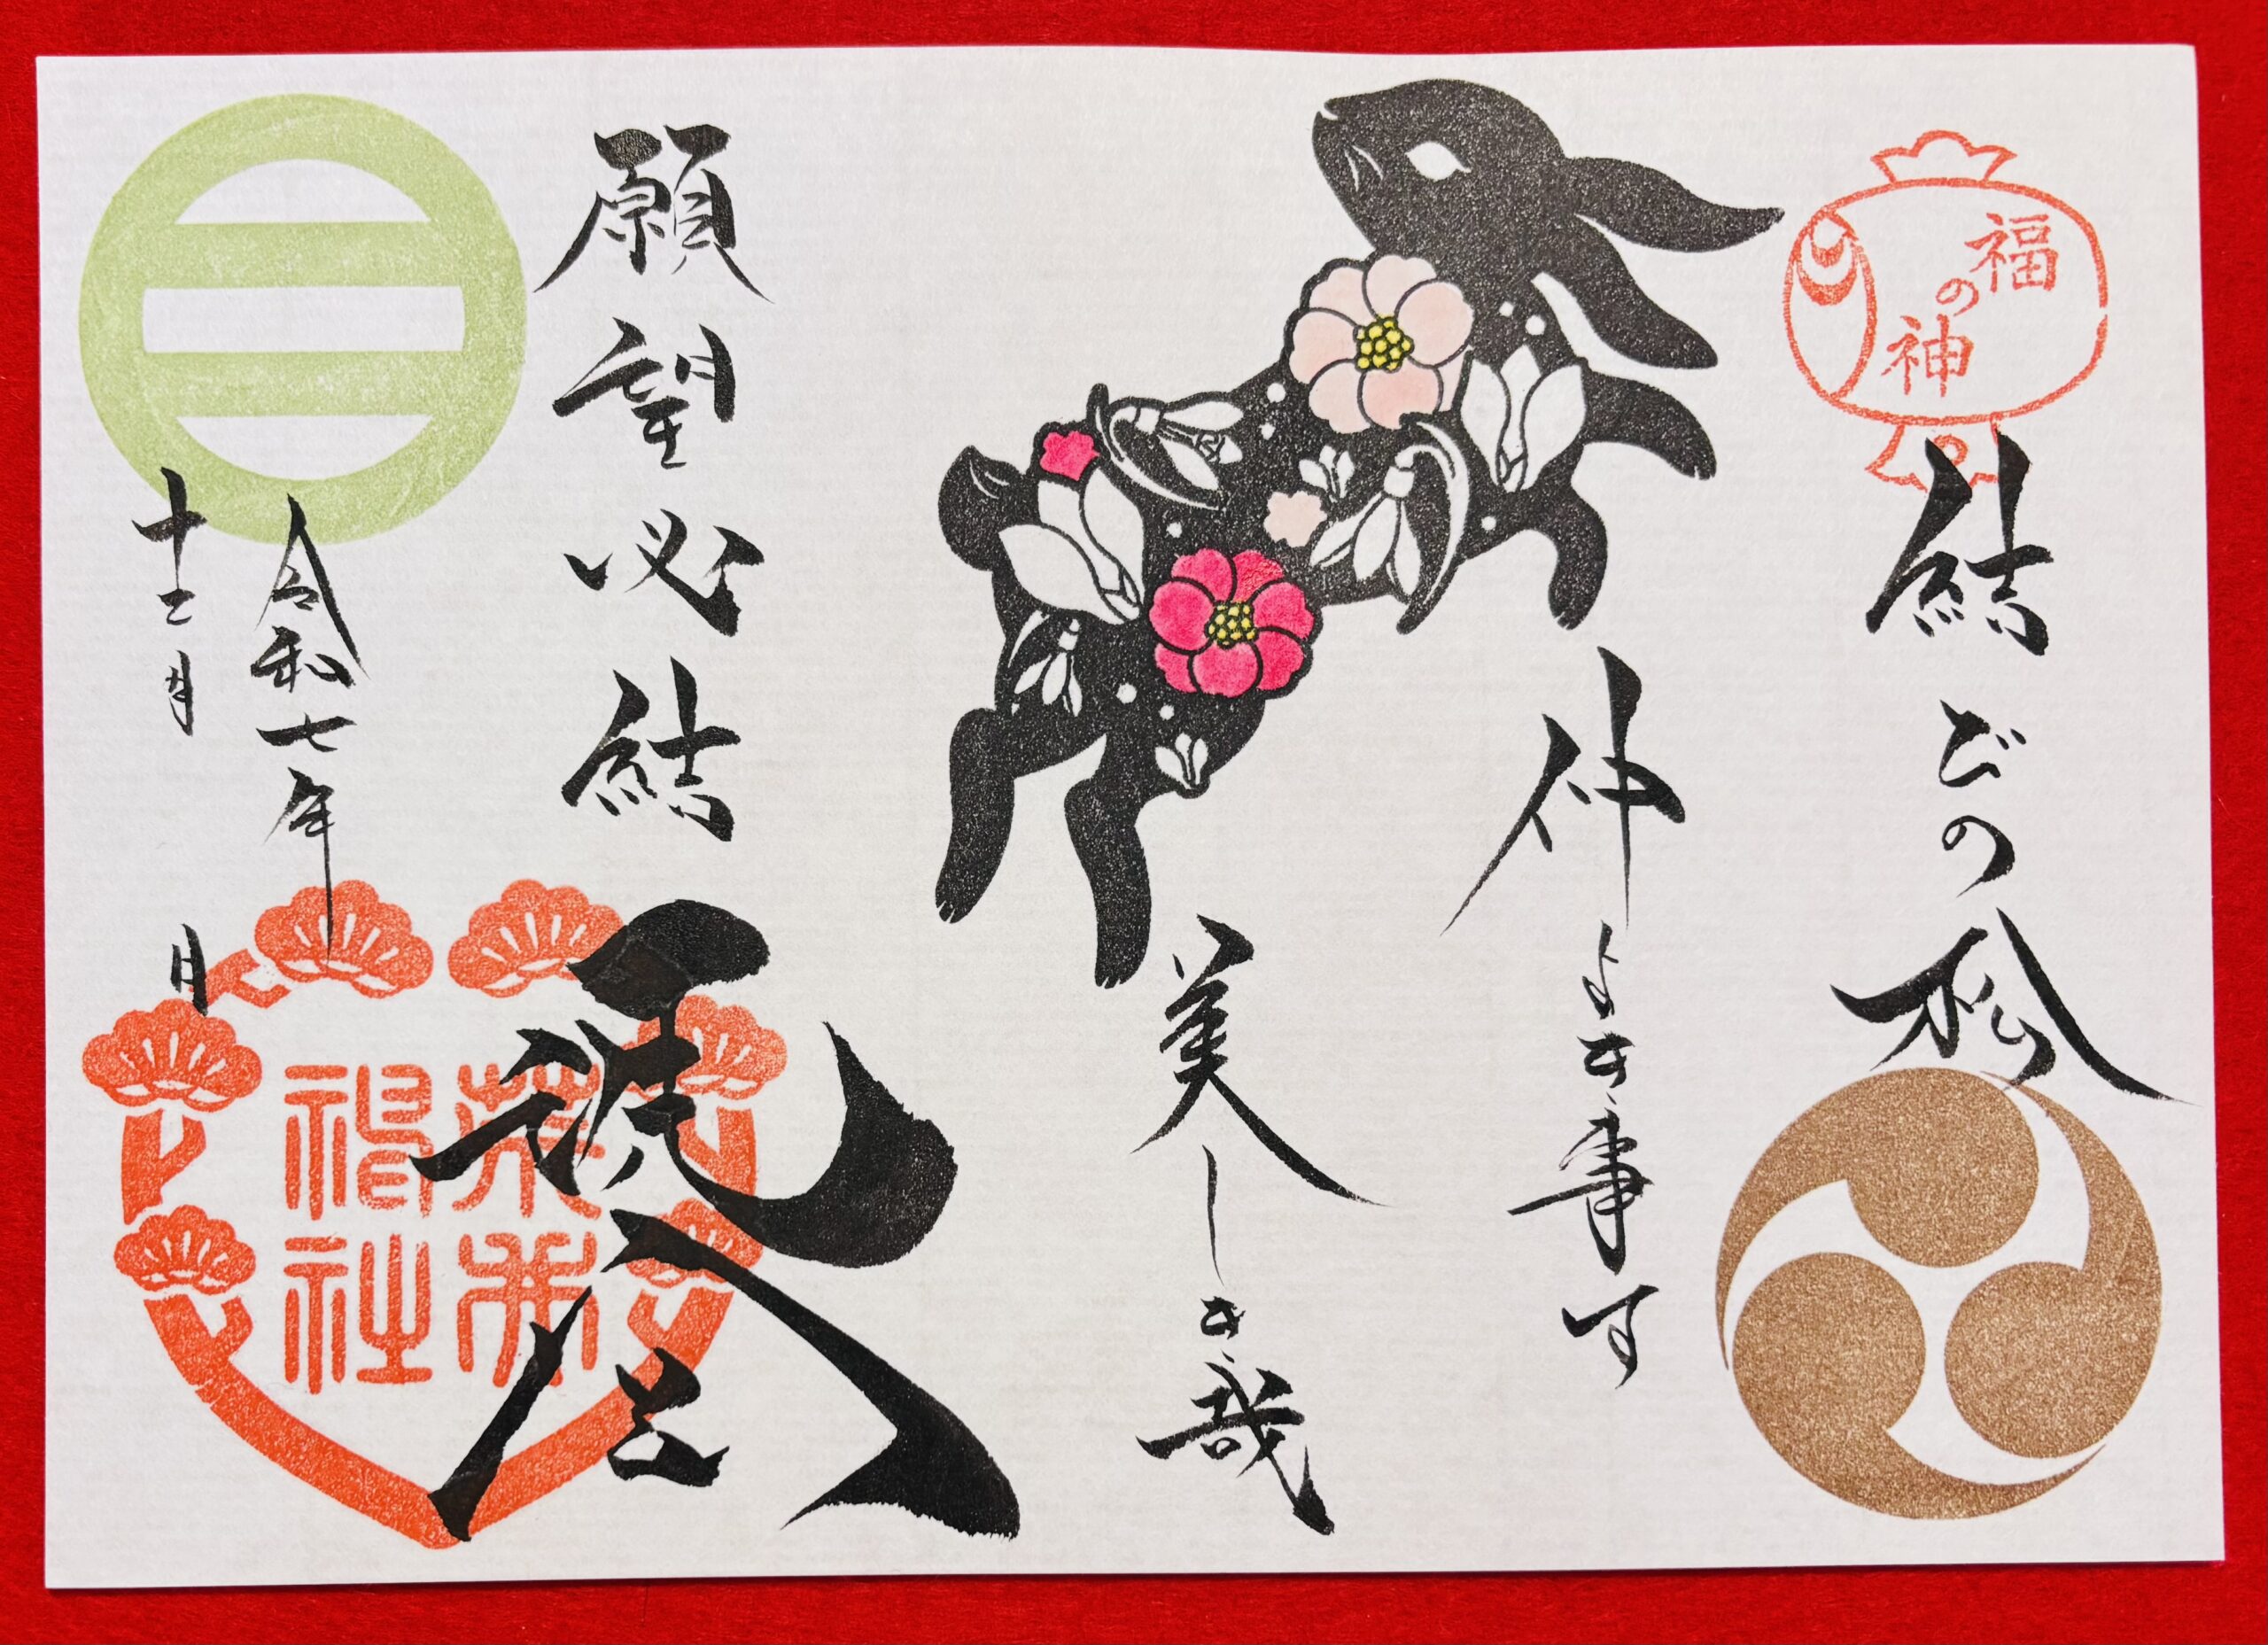 福の神
結びの松
仲よき事は
美しき哉
願望必結
令和七年
十二月 日
神社